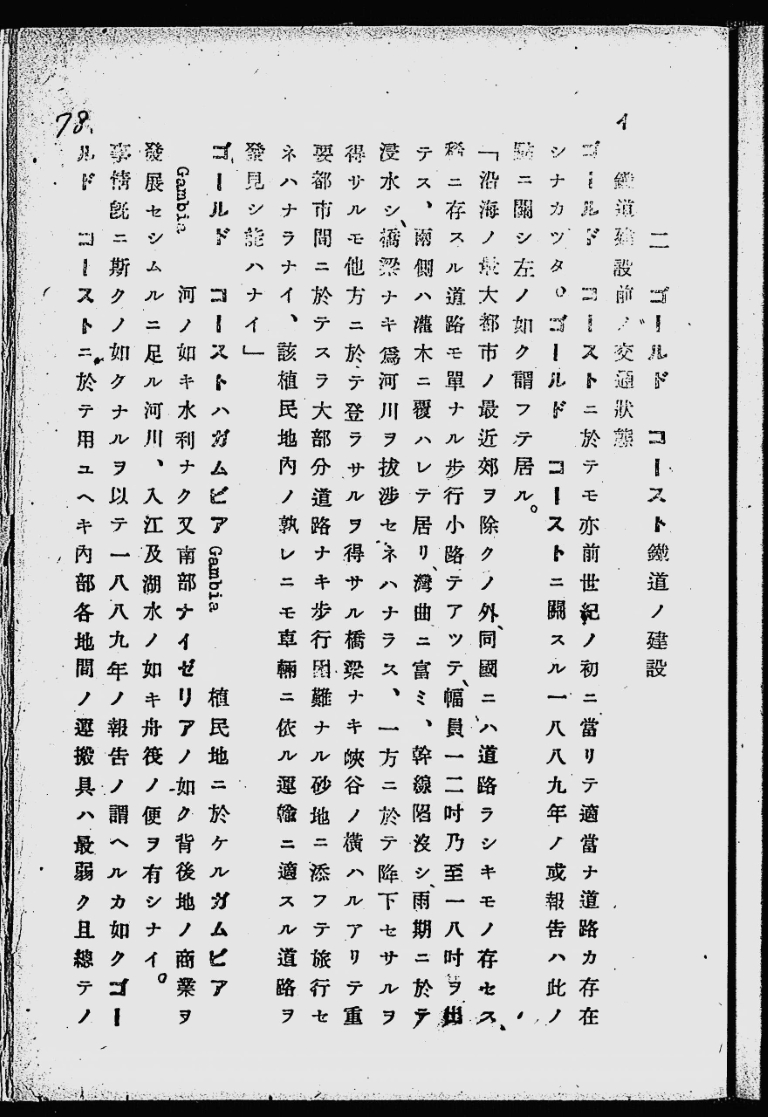 二 ゴールド コースト鐵道ノ建設
イ 鐵道建設前ノ交通狀態
ゴールド コーストニ於テモ亦前世紀ノ初ニ當リテ適當ナ道路カ存在
シナカツタ。ゴールド コーストニ關スル一八八九年ノ或報告ハ此ノ
點ニ關シ左ノ如ク謂フテ居ル。
「沿海ノ最大都市ノ最近郊ヲ除クノ外、同國ニハ道路ラシキモノ存セス、
稀ニ存スル道路モ單ナル步行小路テアツテ、幅員一二吋乃至一八吋ヲ出
テス、兩側ハ灌木ニ覆ハレテ居リ灣曲ニ富ミ、幹線陷沒シ、雨期ニ於テ
浸水シ、橋梁ナキ爲河川ヲ拔涉セネハナラス、一方ニ於テ降下セサルヲ
得サルモ他方ニ於テ登ラサルヲ得サル橋梁ナキ峽谷ノ橫ハルアリテ重
要都市間ニ於テスラ大部分道路ナキ步行困難ナル砂地ニ添フテ旅行セ
ネハナラナイ、該植民地內ノ孰レニモ車輛ニ依ル運輸ニ適スル道路ヲ
發見シ能ハナイ」
ゴールド コーストハガムビア Gambia 植民地ニ於ケルガムビア
Gambia 河ノ如キ水利ナク又南部ナイゼリアノ如ク背後地ノ商業ヲ
發展セシムルニ足ル河川、入江及湖水ノ如キ舟筏ノ便ヲ有シナイ。
事情旣ニ斯クノ如クナルヲ以テ一八八九年ノ報告ノ謂ヘルカ如クゴー
ルド コーストニ於テ用ユヘキ內部各地間ノ運搬具ハ最弱ク且總テノ
78